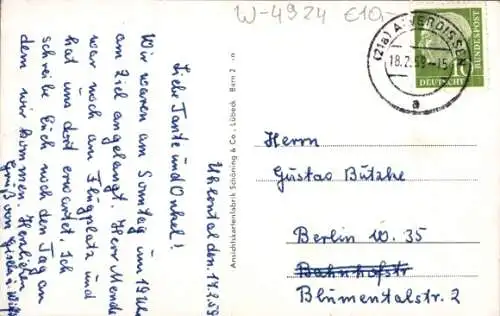 W-4924 €10,-
(21a) ALVERDISSEN
18.2.59-15
a
DEUTSCHE
BUNDESPOST
Uhlental den 17.2.59
Liebe Tante und Onkel!
Wir waren am Sonntag um 19 Uhr
am Ziel angelangt. Herr Mende
war noch am Flugplatz und
hat uns dort erwartet. Ich
schreibe Euch noch den Tag an
dem wir kommen. Herzlichen
Gruß von Gisela u. Willi
Ansichtskartenfabrik Schöning & Co., Lübeck
Herrn
Gustav Butzke
Berlin W. 35
Bahnhofstr
Blumentalstr. 2